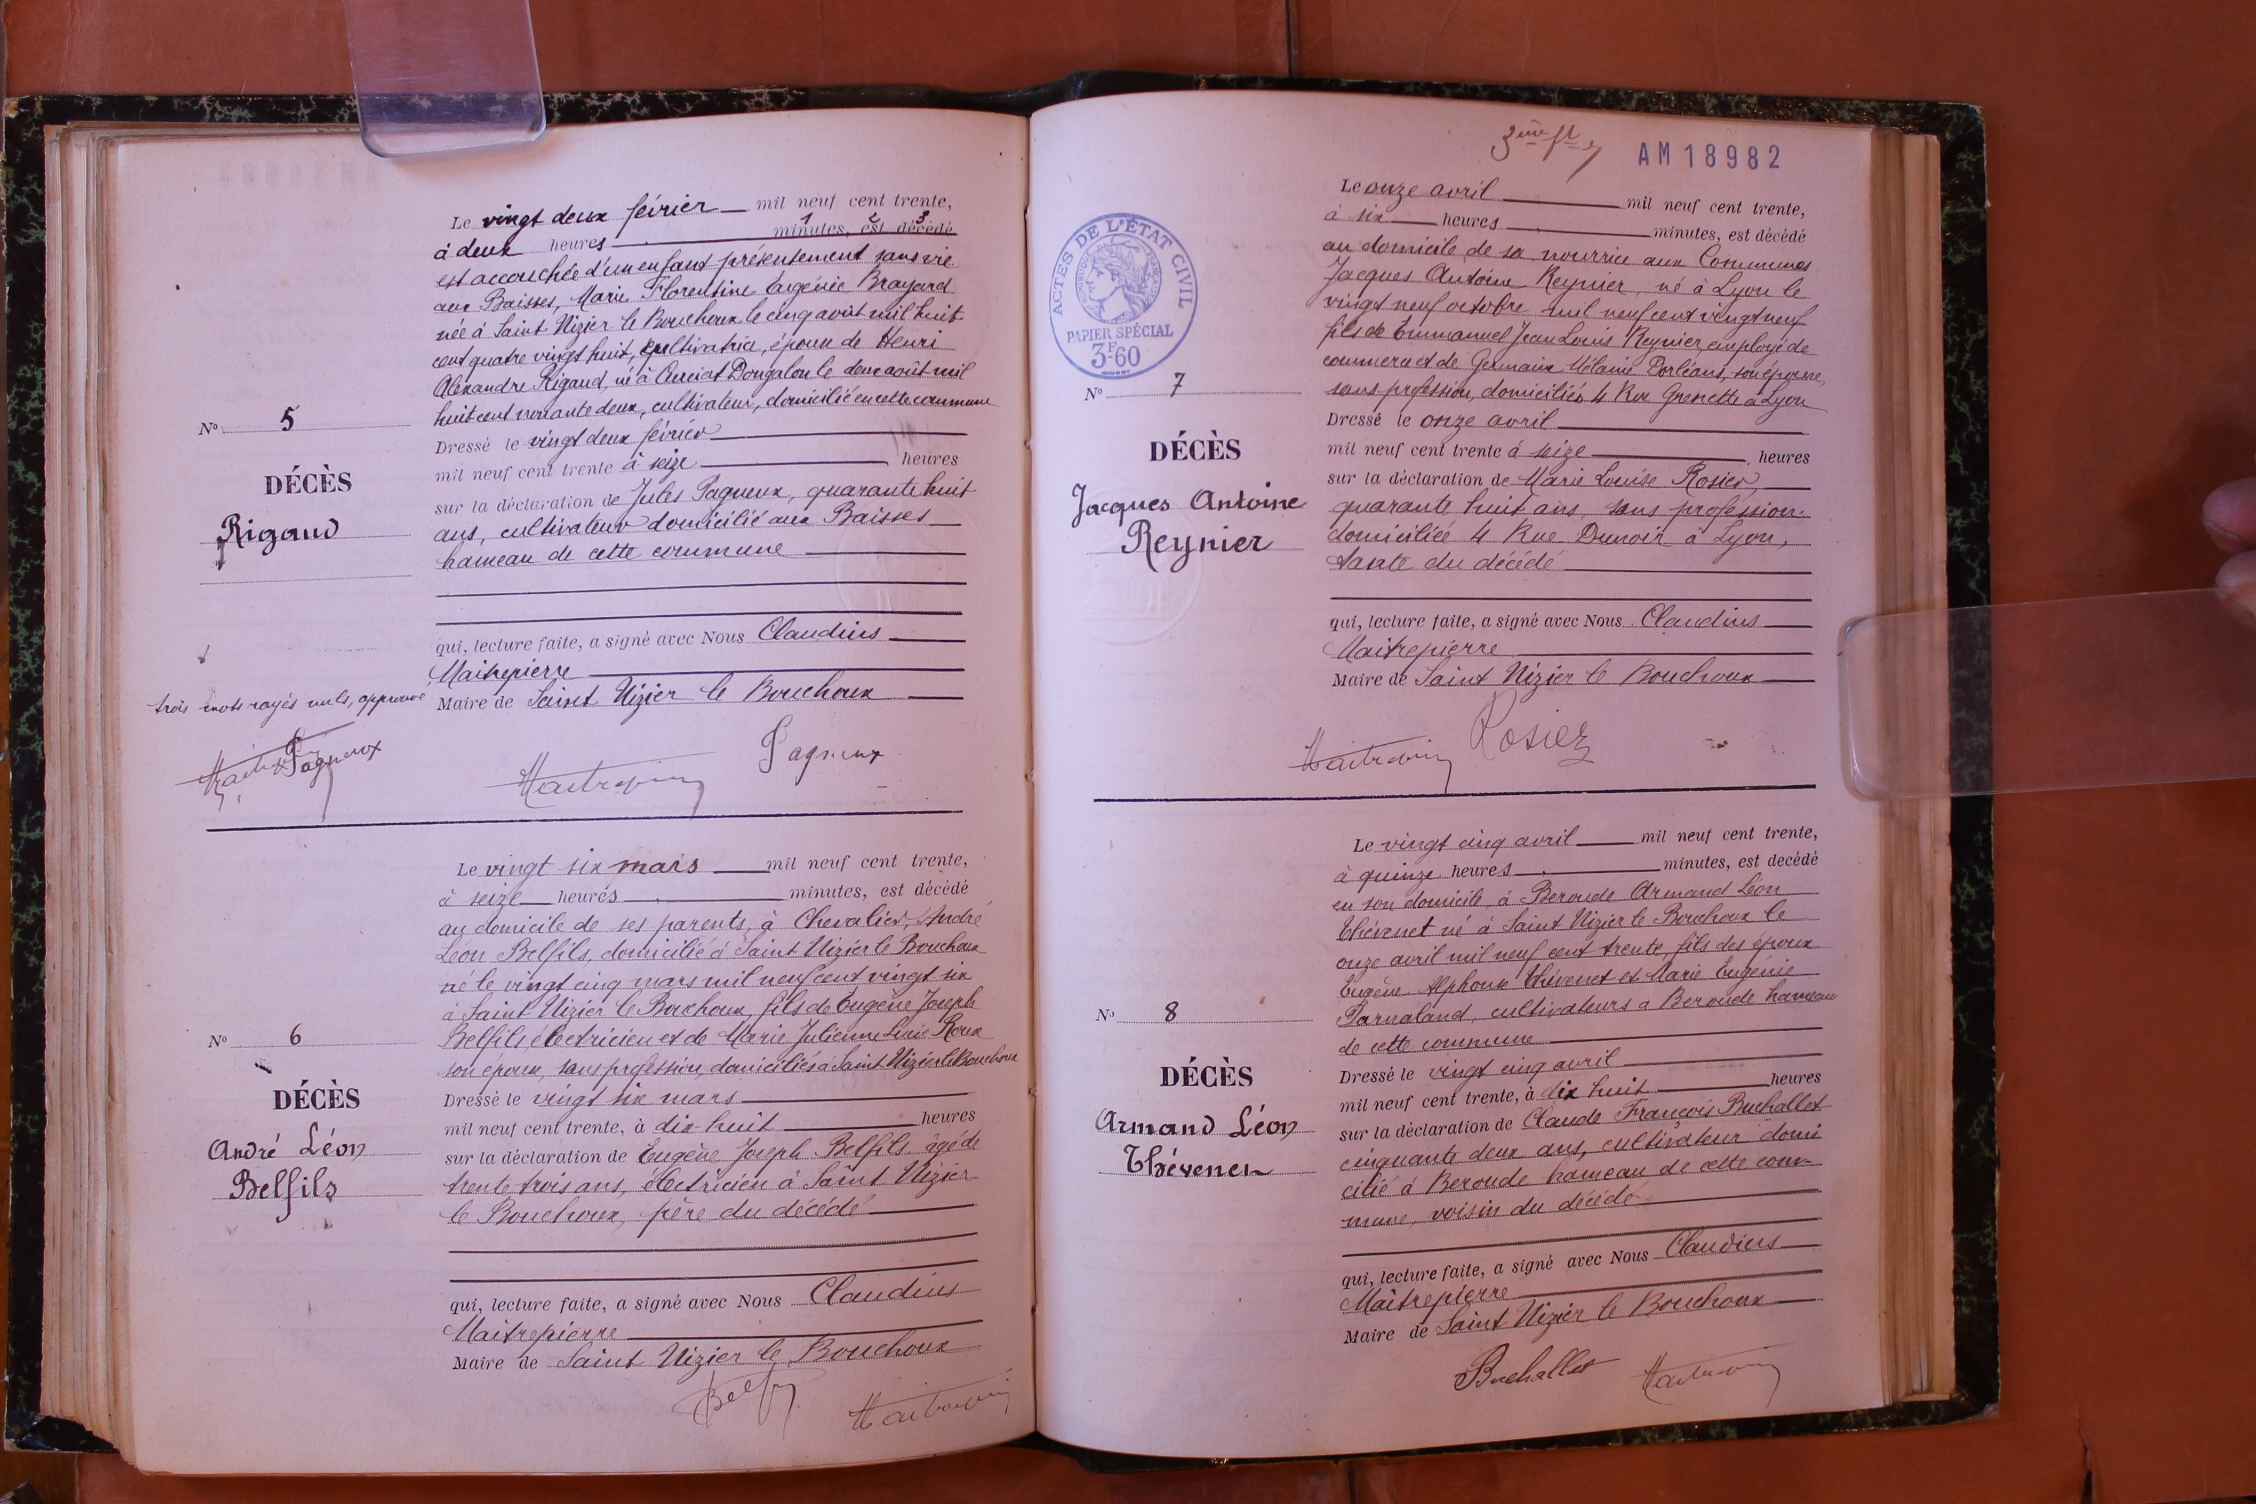 Le vingt deux février mil neuf cent trente,
1 2 3
à deux heures minutes, est décédé
est accouchée d'un enfant présentement sans vie
aux Baisses, Marie Florentine Eugénie Brayard
née à Saint Nizier le Bouchoux le cinq août mil huit
cent quatre vingt huit, cultivatrice, épouse de Henri
Alexandre Rigaud, né à Curciat Dongalon le douze août mil
huit cent nonante deux, cultivateur, domicilié en cette commune
Nº 5
Dressé le vingt deux février
mil neuf cent trente à seize heures
DÉCÈS
Rigaud
sur la déclaration de Jules Pagneux, quarante huit
ans, cultivateur domicilié aux Baisses
hameau de cette commune
qui, lecture faite, a signé avec Nous Claudius
Maitrepierre
Maire de Saint Nizier le Bouchoux
trois mots rayés nuls, approuvé
Maitrepierre Pagneux
Maitrepierre Pagneux
Le vingt six mars mil neuf cent trente,
à seize heures minutes, est décédé
au domicile de ses parents, à Chevalier, André
Léon Belfils, domicilié à Saint Nizier le Bouchoux
né le vingt cinq mars mil neuf cent vingt six
à Saint Nizier le Bouchoux, fils de Eugène Joseph
Belfils, électricien et de Marie Julienne Roux
son épouse, sans profession, domiciliés à Saint Nizier le Bouchoux
Nº 6
DÉCÈS
André Léon
Belfils
Dressé le vingt six mars
mil neuf cent trente, à dix-huit heures
sur la déclaration de Eugène Joseph Belfils âgé de
trente trois ans, électricien à Saint Nizier
le Bouchoux, père du décédé
qui, lecture faite, a signé avec Nous Claudius
Maitrepierre
Maire de Saint Nizier le Bouchoux
Belfils Maitrepierre
3ème ft
AM18982
ACTES DE L'ÉTAT CIVIL
PAPIER SPÉCIAL
3F.60
Le onze avril mil neuf cent trente,
à six heures minutes, est décédé
au domicile de sa nourrice aux Communes
Jacques Antoine Reynier, né à Lyon le
vingt neuf octobre mil neuf cent vingt neuf
fils de Emmanuel Jean Louis Reynier, employé de
commerce et de Germaine Mélanie Dorléans, son épouse,
sans profession, domiciliés 4 Rue Grenette à Lyon
Nº 7
DÉCÈS
Jacques Antoine
Reynier
Dressé le onze avril
mil neuf cent trente à seize heures
sur la déclaration de Marie Louise Rosier
quarante huit ans, sans profession
domiciliée 4 Rue Dunoir à Lyon,
tante du décédé
qui, lecture faite, a signé avec Nous Claudius
Maitrepierre
Maire de Saint Nizier le Bouchoux
Maitrepierre Rosier
Le vingt cinq avril mil neuf cent trente,
à quinze heures minutes, est decédé
en son domicile, à Beroude Armand Léon
Thévenet né à Saint Nizier le Bouchoux le
onze avril mil neuf cent trente, fils des époux
Eugène Alphonse Thévenet et Marie Eugénie
cultivateurs à Beroude hameau
de cette commune
Nº 8
DÉCÈS
Armand Léon
Thévenet
Dressé le vingt cinq avril
mil neuf cent trente, à dix huit heures
sur la déclaration de Claude François Buchallet
cinquante deux ans, cultivateur domi
cilié à Beroude hameau de cette com-
mune, voisin du décédé
qui, lecture faite, a signé avec Nous Claudius
Maitrepierre
Maire de Saint Nizier le Bouchoux
Buchallet Maitrepierre